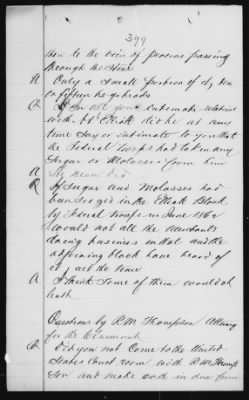 399
then to the view of persons passing
through the Store
A Only a small portion of it, ten
or fifteen hogsheads
Q In all your intimate relations
with Mr Elliott did he at any
time say or intimate to you that
the Federal troops had taken any
Sugar or Molasses from him
A He never did
Q If Sugar and Molasses had
been seized in the Elliott Block
by Federal troops in June 1862
would not all the merchants
doing business in that and the
adjoining block have heard of
it at the time
A I think some of them would at
least
Questions by R.M. Thompson Attorney
for the Claimant
Q Did you not come to the United
States Court room with R.M. Thomp
son and make oath in due form